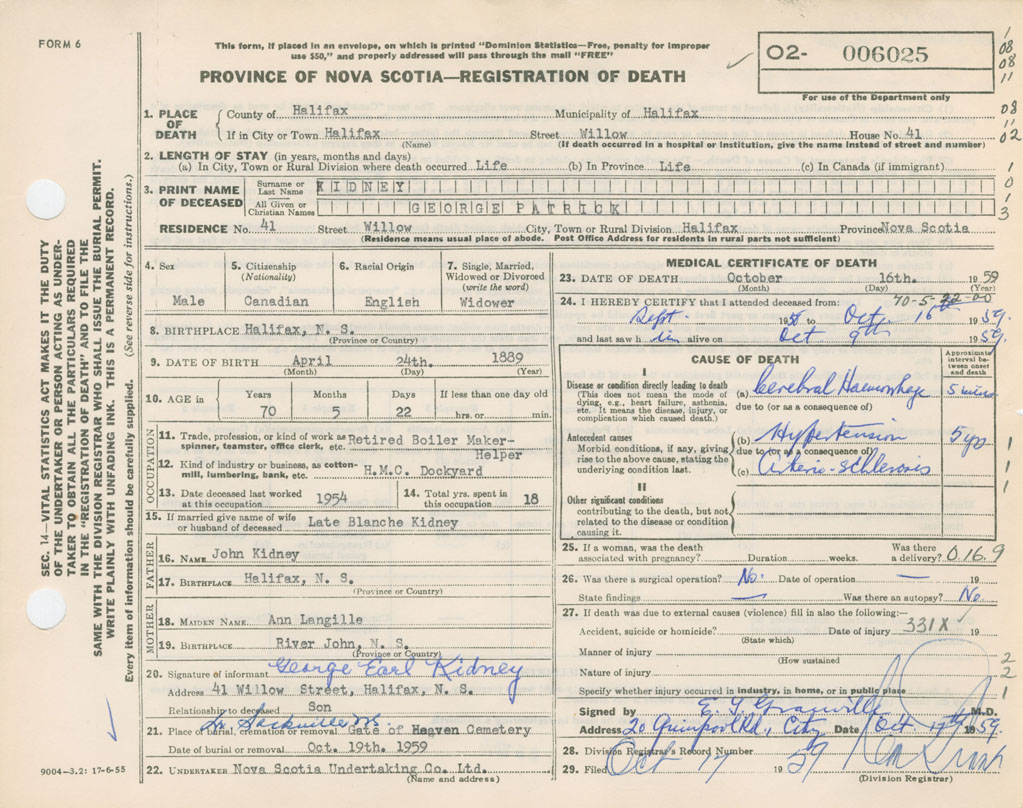 FORM 6
This form, if placed in an envelope, on which is printed "Dominion Statistics—Free, penalty for improper
use $50," and properly addressed will pass through the mail "FREE"
PROVINCE OF NOVA SCOTIA—REGISTRATION OF DEATH
02- 006025
For use of the Department only
1. PLACE OF DEATH
County of Halifax Municipality of Halifax
If in City or Town Halifax Street Willow House No. 41
(Name) (If death occurred in a hospital or institution, give the name instead of street and number)
2. LENGTH OF STAY (in years, months and days)
(a) In City, Town or Rural Division where death occurred Life (b) In Province Life (c) In Canada (if immigrant)
3. PRINT NAME OF DECEASED
Surname or Last Name KIDNEY
All Given or Christian Names GEORGE PATRICK
RESIDENCE No. 41 Street Willow City, Town or Rural Division Halifax Province Nova Scotia
(Residence means usual place of abode. Post Office Address for residents in rural parts not sufficient)
4. Sex
Male
5. Citizenship
(Nationality)
Canadian
6. Racial Origin
English
7. Single, Married,
Widowed or Divorced
(write the word)
Widower
8. BIRTHPLACE Halifax, N. S.
(Province or Country)
9. DATE OF BIRTH April 24th. 1889
(Month) (Day) (Year)
10. AGE in Years Months Days If less than one day old
70 5 22 hrs. or min.
OCCUPATION
11. Trade, profession, or kind of work as Retired Boiler Maker-
spinner, teamster, office clerk, etc. Helper
12. Kind of industry or business, as cotton-
mill, lumbering, bank, etc. H.M.C. Dockyard
13. Date deceased last worked
at this occupation 1954
14. Total yrs. spent in
this occupation 18
15. If married give name of wife
or husband of deceased Late Blanche Kidney
FATHER
16. NAME John Kidney
17. BIRTHPLACE Halifax, N. S.
(Province or Country)
MOTHER
18. MAIDEN NAME Ann Langille
19. BIRTHPLACE River John, N. S.
(Province or Country)
20. Signature of informant George Earl Kidney
Address 41 Willow Street, Halifax, N. S.
Relationship to deceased Son
Sackville NS
21. Place of burial, cremation or removal Gate of Heaven Cemetery
Date of burial or removal Oct. 19th. 1959
22. UNDERTAKER Nova Scotia Undertaking Co. Ltd.
(Name and address)
MEDICAL CERTIFICATE OF DEATH
23. DATE OF DEATH October 16th. 1959
(Month) (Day) (Year)
70-5-22-00
24. I HEREBY CERTIFY that I attended deceased from:
Sept. 19 to Oct. 16th 1959.
and last saw h im alive on Oct 9th 1959.
CAUSE OF DEATH
Approximate
interval be-
tween onset
and death
I
Disease or condition directly leading to death
(This does not mean the mode of
dying, e.g., heart failure, asthenia,
etc. It means the disease, injury, or
complication which caused death.)
(a) Cerebral Haemorrhage 5 mins
due to (or as a consequence of)
Antecedent causes
Morbid conditions, if any, giving
rise to the above cause, stating the
underlying condition last.
(b) Hypertension 5 yrs
due to (or as a consequence of)
(c) Arterio-schlerosis
II
Other significant conditions
contributing to the death, but not
related to the disease or condition
causing it.
25. If a woman, was the death
associated with pregnancy? Duration weeks.
Was there
a delivery? 0.16.9
26. Was there a surgical operation? No. Date of operation — 19
State findings — Was there an autopsy? No
27. If death was due to external causes (violence) fill in also the following:—
Accident, suicide or homicide? Date of injury 331X 19
(State which)
Manner of injury
(How sustained
Nature of injury
Specify whether injury occurred in industry, in home, or in public place
Signed by E. F. Granville M.D.
Address 20 Quinpool Rd., City Date Oct. 17th 1959.
28. Division Registrar's Record Number
29. Filed Oct 17 1959
(Division Registrar)
SEC. 14—VITAL STATISTICS ACT MAKES IT THE DUTY
OF THE UNDERTAKER OR PERSON ACTING AS UNDER-
TAKER TO OBTAIN ALL THE PARTICULARS REQUIRED
IN THE "REGISTRATION OF DEATH" AND TO FILE THE
SAME WITH THE DIVISION REGISTRAR WHO SHALL ISSUE THE BURIAL PERMIT.
WRITE PLAINLY WITH UNFADING INK. THIS IS A PERMANENT RECORD.
Every item of information should be carefully supplied. (See reverse side for instructions.)
9004—3.2: 17-6-55
1
08
08
11
08
11
02
1
0
1
3
1
1
1
2
2
1